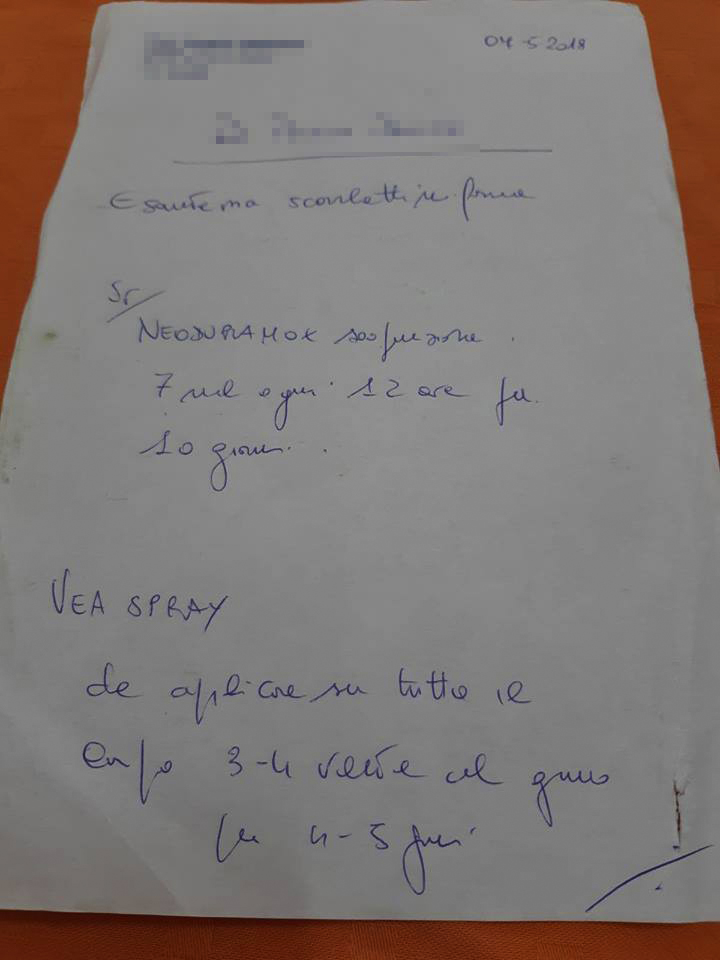 04-5-2018
Esantema scarlattiniforme
NEODURAMOX sospensione.
7 ml ogni 12 ore per
10 giorni.
VEA SPRAY
da aplicare su tutto il
corpo 3-4 volte al giorno
per 4-5 giorni